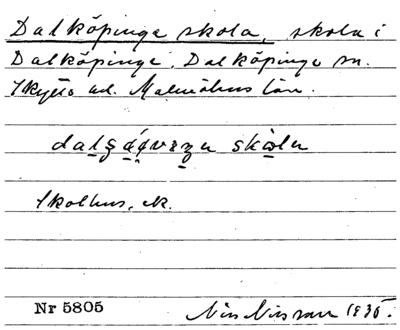 Dalköpinge skola, skola i
Dalköpinge, Dalköpinge sn.
Skytts hd. Malmöhus län.
skola
Skolhus, ek.
Nr 5805 Nils Nilsson 1935.